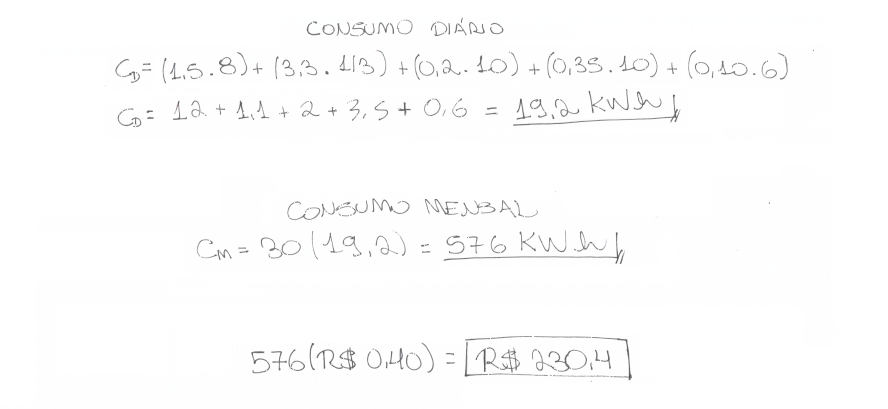 CONSUMO DIÁRIO
C_D = (1,5 . 8) + (3,3 . 1/3) + (0,2 . 10) + (0,35 . 10) + (0,10 . 6)
C_D = 12 + 1,1 + 2 + 3,5 + 0,6 = 19,2 KWh
CONSUMO MENSAL
C_M = 30 (19,2) = 576 KWh
576 (R$ 0,40) = R$ 230,4